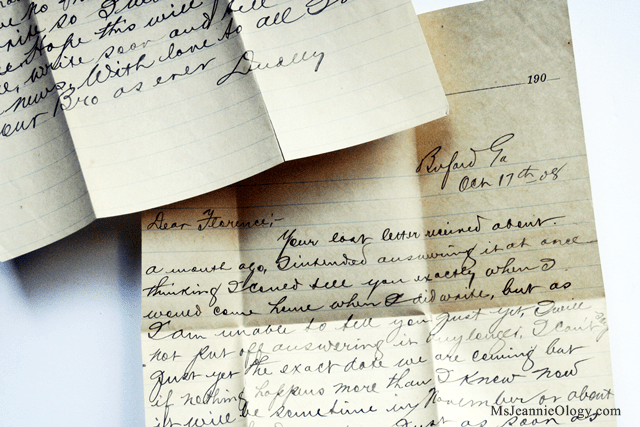 write so I w
Hope this will
write soon and tell
news. With love to all
our Bro as ever Dudley
190
Buford Ga
Oct 17th 08
Dear Florence;-
Your last letter received about
a month ago, I intended answering it at once
thinking I could tell you exactly when I
would come home when I did write, but as
I am unable to tell you just yet, I will
not put off answering it any longer. I can't say
Just yet the exact date we are coming but
if nothing happens more than I know now
it will be sometime in November or about
Just as soon as
MsJeannieOlogy.com